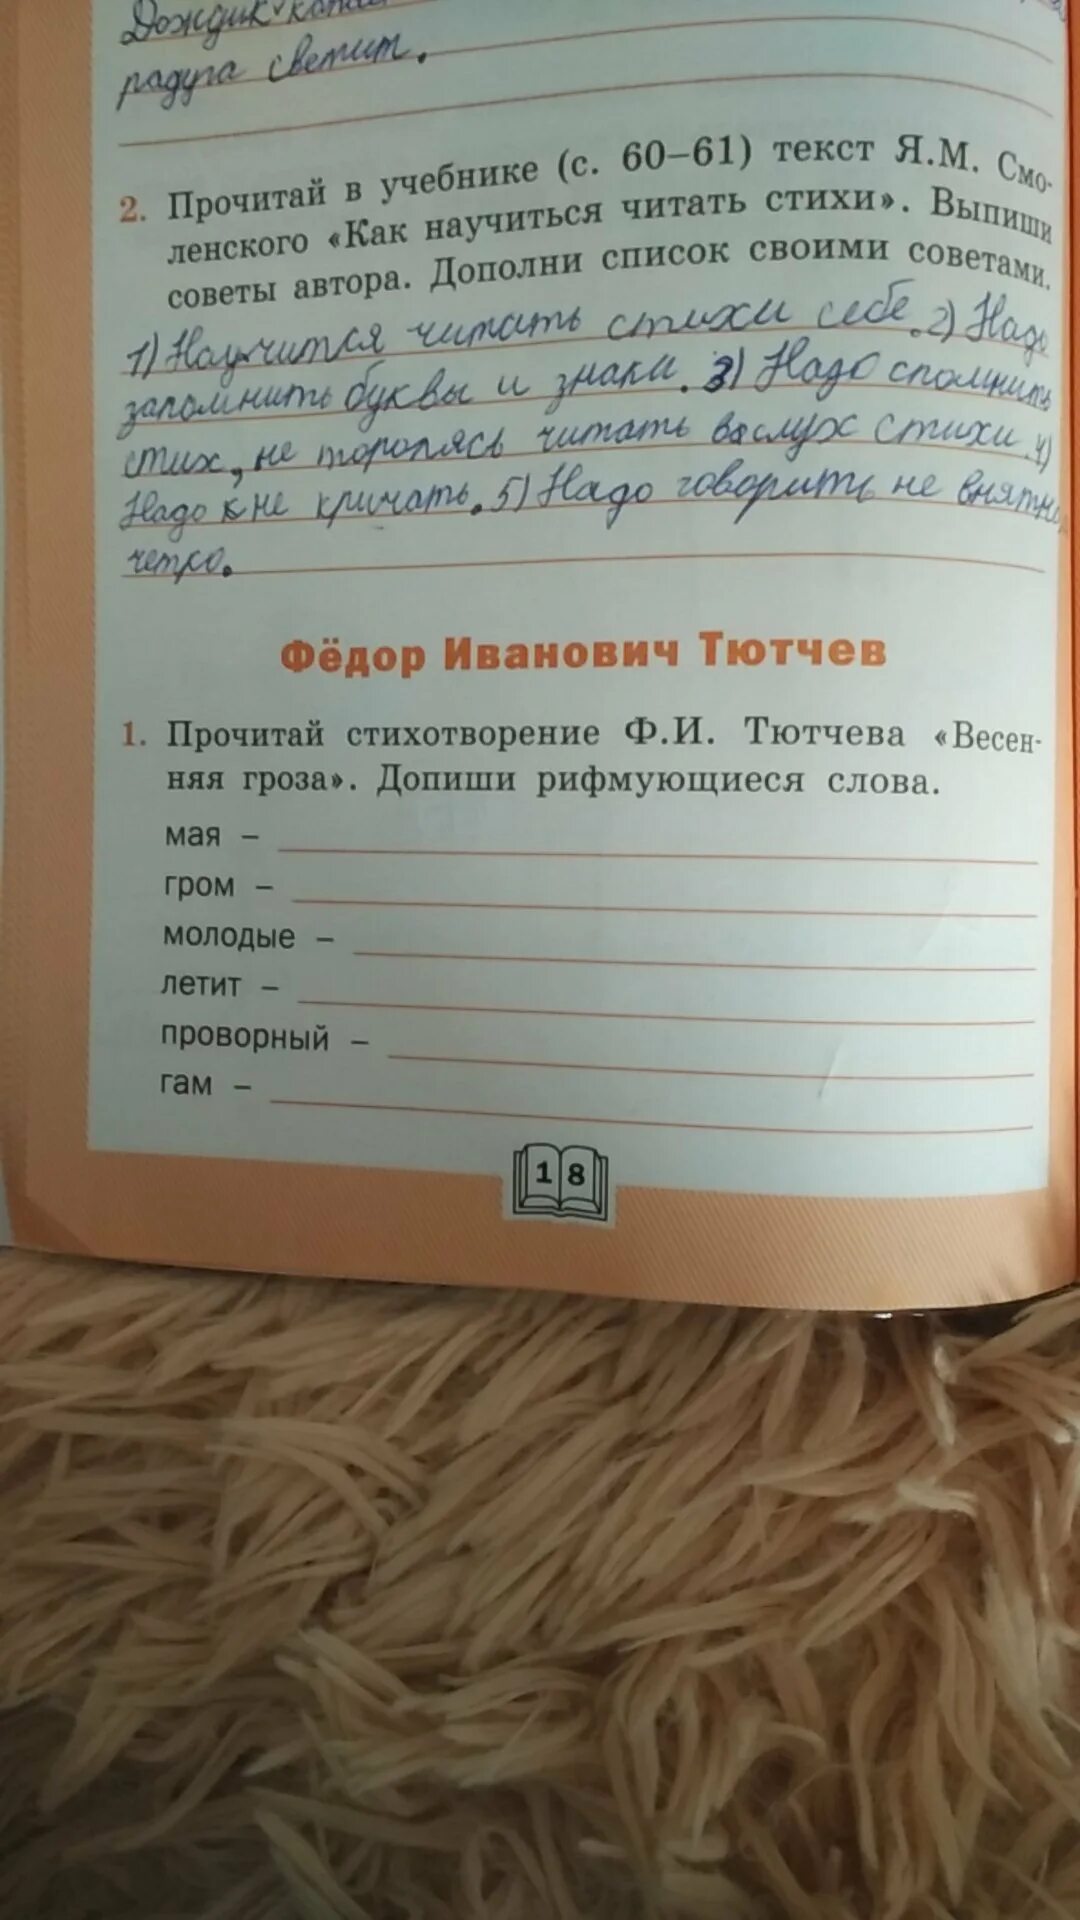 Дождик
радуга светит.
2. Прочитай в учебнике (с. 60–61) текст Я.М. Смо-
ленского «Как научиться читать стихи». Выпиши
советы автора. Дополни список своими советами.
1) Научится читать стихи себе. 2) Надо
запомнить буквы и знаки. 3) Надо спомнить
стих, не торопясь читать вслух стихи 4)
Надо не кричать. 5) Надо говорить не внятно
четко.
Фёдор Иванович Тютчев
1. Прочитай стихотворение Ф.И. Тютчева «Весен-
няя гроза». Допиши рифмующиеся слова.
мая –
гром –
молодые –
летит –
проворный –
гам –
18